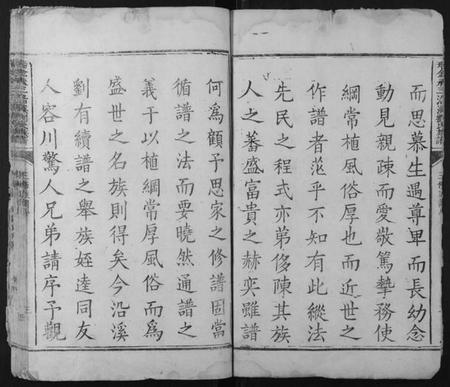 而思慕生遇尊卑而長幼念
動見親疎而愛敬篤摯務使
綱常植風俗厚也而近世之
作譜者茫乎不知有此縱法
先民之程式亦弟侈陳其族
人之蕃盛富貴之赫奕雖譜
何為顧予思家之修譜固當
循譜之法而要曉然通譜之
義于以植綱常厚風俗而為
盛世之名族則得矣今沿溪
劉有續譜之舉族姪達同友
人容川驚人兄弟請序予觀